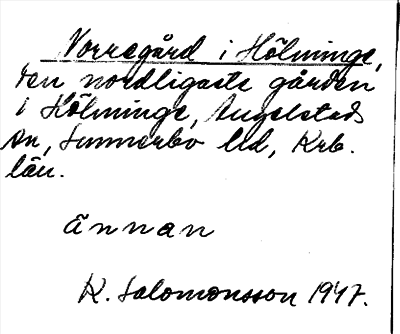 Norregård i Hölminge,
den nordligaste gården
i Hölminge, Angelstads
sn, Sunnerbo hd, Krb.
län.
ännan
K. Salomonsson 1947.